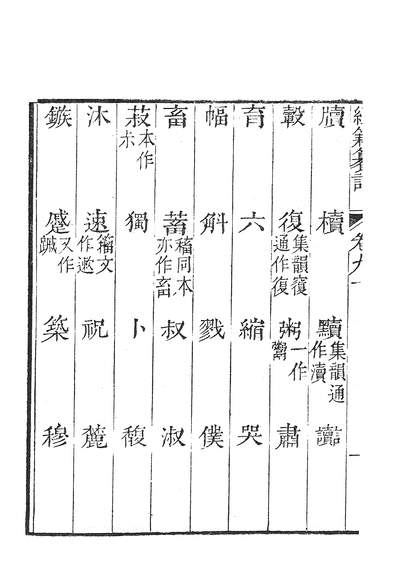 經籍籑詁 卷九十 一
牘 櫝 黷集韻通作瀆 讟
轂 復集韻覆通作復 粥一作鬻 肅
育 六 縮 哭
幅 斛 戮 僕
畜 蓄稸同本亦作畜 叔 淑
菽本作尗 獨 卜 馥
沐 速籀文作遬 祝 麓
鏃 蹙又作 築 穆